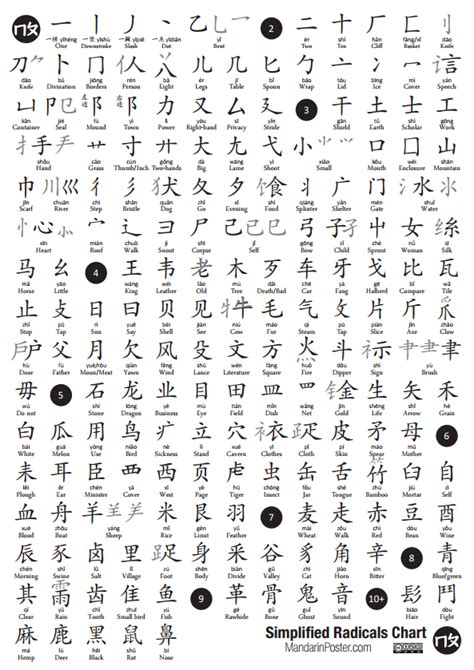 一 丨 丿 丶 乙 2 二 十 厂 匚 刂
一横 yīhéng 一竖 yīshù 一撇 yīpiě yǐ èr shí chǎng dāo
One Downstroke Slash Dot Bent Two Ten Cliff Basket Knife
刀 卜 冂 亻 人 八 儿 几 亠 勹 冖 凵 冫 讠 言
dāo bǔ rén bā ér jī tóu bāo mì bīng yán
Knife Divining Borders Person Eight Legs Table Cover Wrap Lid Ice Cover Speech
凵 卩 㔾 阝 阝 力 又 厶 廴 3 干 土 士 工
Container Seal Mound Town Power Right-hand Privacy Stride Shield Earth Scholar Work
扌 手 艹 寸 廾 大 尢 小 口 囗 山
shǒu cǎo cùn gǒng dà yóu xiǎo kǒu wéi shān
Hand Grass Thumb/Inch Two-hands Big Lame Small Mouth Enclosure Mountain
巾 川 巛 彳 彡 犭 犬 夂 夕 饣 食 爿 广 门 氵 水 氺
jīn chuān chì shān quǎn zhǐ xī shí guǎng mén shuǐ
Scarf River Step Bristle Dog Go Evening Food Splinter Shelter Gate Water
忄 心 宀 辶 彐 尸 己 已 巳 弓 子 屮 女 纟 糸
xīn mián chuò jì shī jǐ gōng zǐ chè nǚ sī
Heart Roof Walk Snout Corpse Self Bow Child Sprout Woman Silk
马 幺 4 王 韦 老 木 歹 车 牙 戈 比 瓦
mǎ yāo wáng wéi lǎo mù dǎi chē yá gē bǐ wǎ
Horse Tiny King Leather Old Tree Death/Bad Car Fang Halberd Compare Tile
止 攴 日 曰 贝 见 牛 毛 气 攵 片 斤 爪
zhǐ pū rì yuē bèi jiàn niú máo qì piàn jīn
Stop Tap Sun Say Shell See Cow Fur Steam Tap Slice Axe Claw
户 父 月 欠 风 殳 文 方 火 灬 斗 礻 示 聿
hù fù qiàn fēng shū wén fāng huǒ dǒu shì yù
Door Father Moon/Meat Yawn Wind Lance Literature Square Fire Dipper Signs Brush
毋 5 石 龙 业 目 田 皿 钅 金 生 矢 禾
wú shí lóng yè mù tián mǐn jīn shēng shǐ hé
Do not Stone Dragon Business Eye Field Dish Net Gold Life Arrow Grain
白 瓜 用 鸟 疒 立 穴 衤 衣 疋 皮 矛 母 6
bái guā yòng niǎo lì xué yī pǐ pí máo mǔ
White Melon Use Bird Sickness Stand Cavern Clothes Cloth Skin Spear Mother
耒 耳 臣 西 页 虍 虫 缶 舌 竹 臼 自
lěi ěr chén xī yè hǔ chóng fǒu shé zhú jiù zì
Plough Ear Minister Cover West Page Tiger Insect Jar Tongue Bamboo Mortar Self
血 舟 羊 米 艮 羽 7 麦 走 赤 豆 酉
xuè zhōu yáng mǐ gèn yǔ mài zǒu chì dòu yǒu
Blood Boat Sheep Rice Limit Feather Wheat Walk Red Bean Wine
辰 豕 卤 里 足 身 釆 谷 豸 角 辛 8 青
chén shǐ lǔ lǐ zú shēn biàn gǔ zhì jiǎo xīn qīng
Morning Swine Salt Village Foot Body Divide Valley Cat Horn Bitter Blue/green
其 雨 齿 隹 鱼 9 革 骨 鬼 音 10+ 鬥
qí yǔ chǐ zhuī yú gé gǔ guǐ yīn
Its Rain Tooth Bird Fish Rawhide Bone Ghost Sound Fight
麻 鹿 黑 鼠 鼻
Hemp Deer Black Mouse Nose
Simplified Radicals Chart
MandarinPoster.com